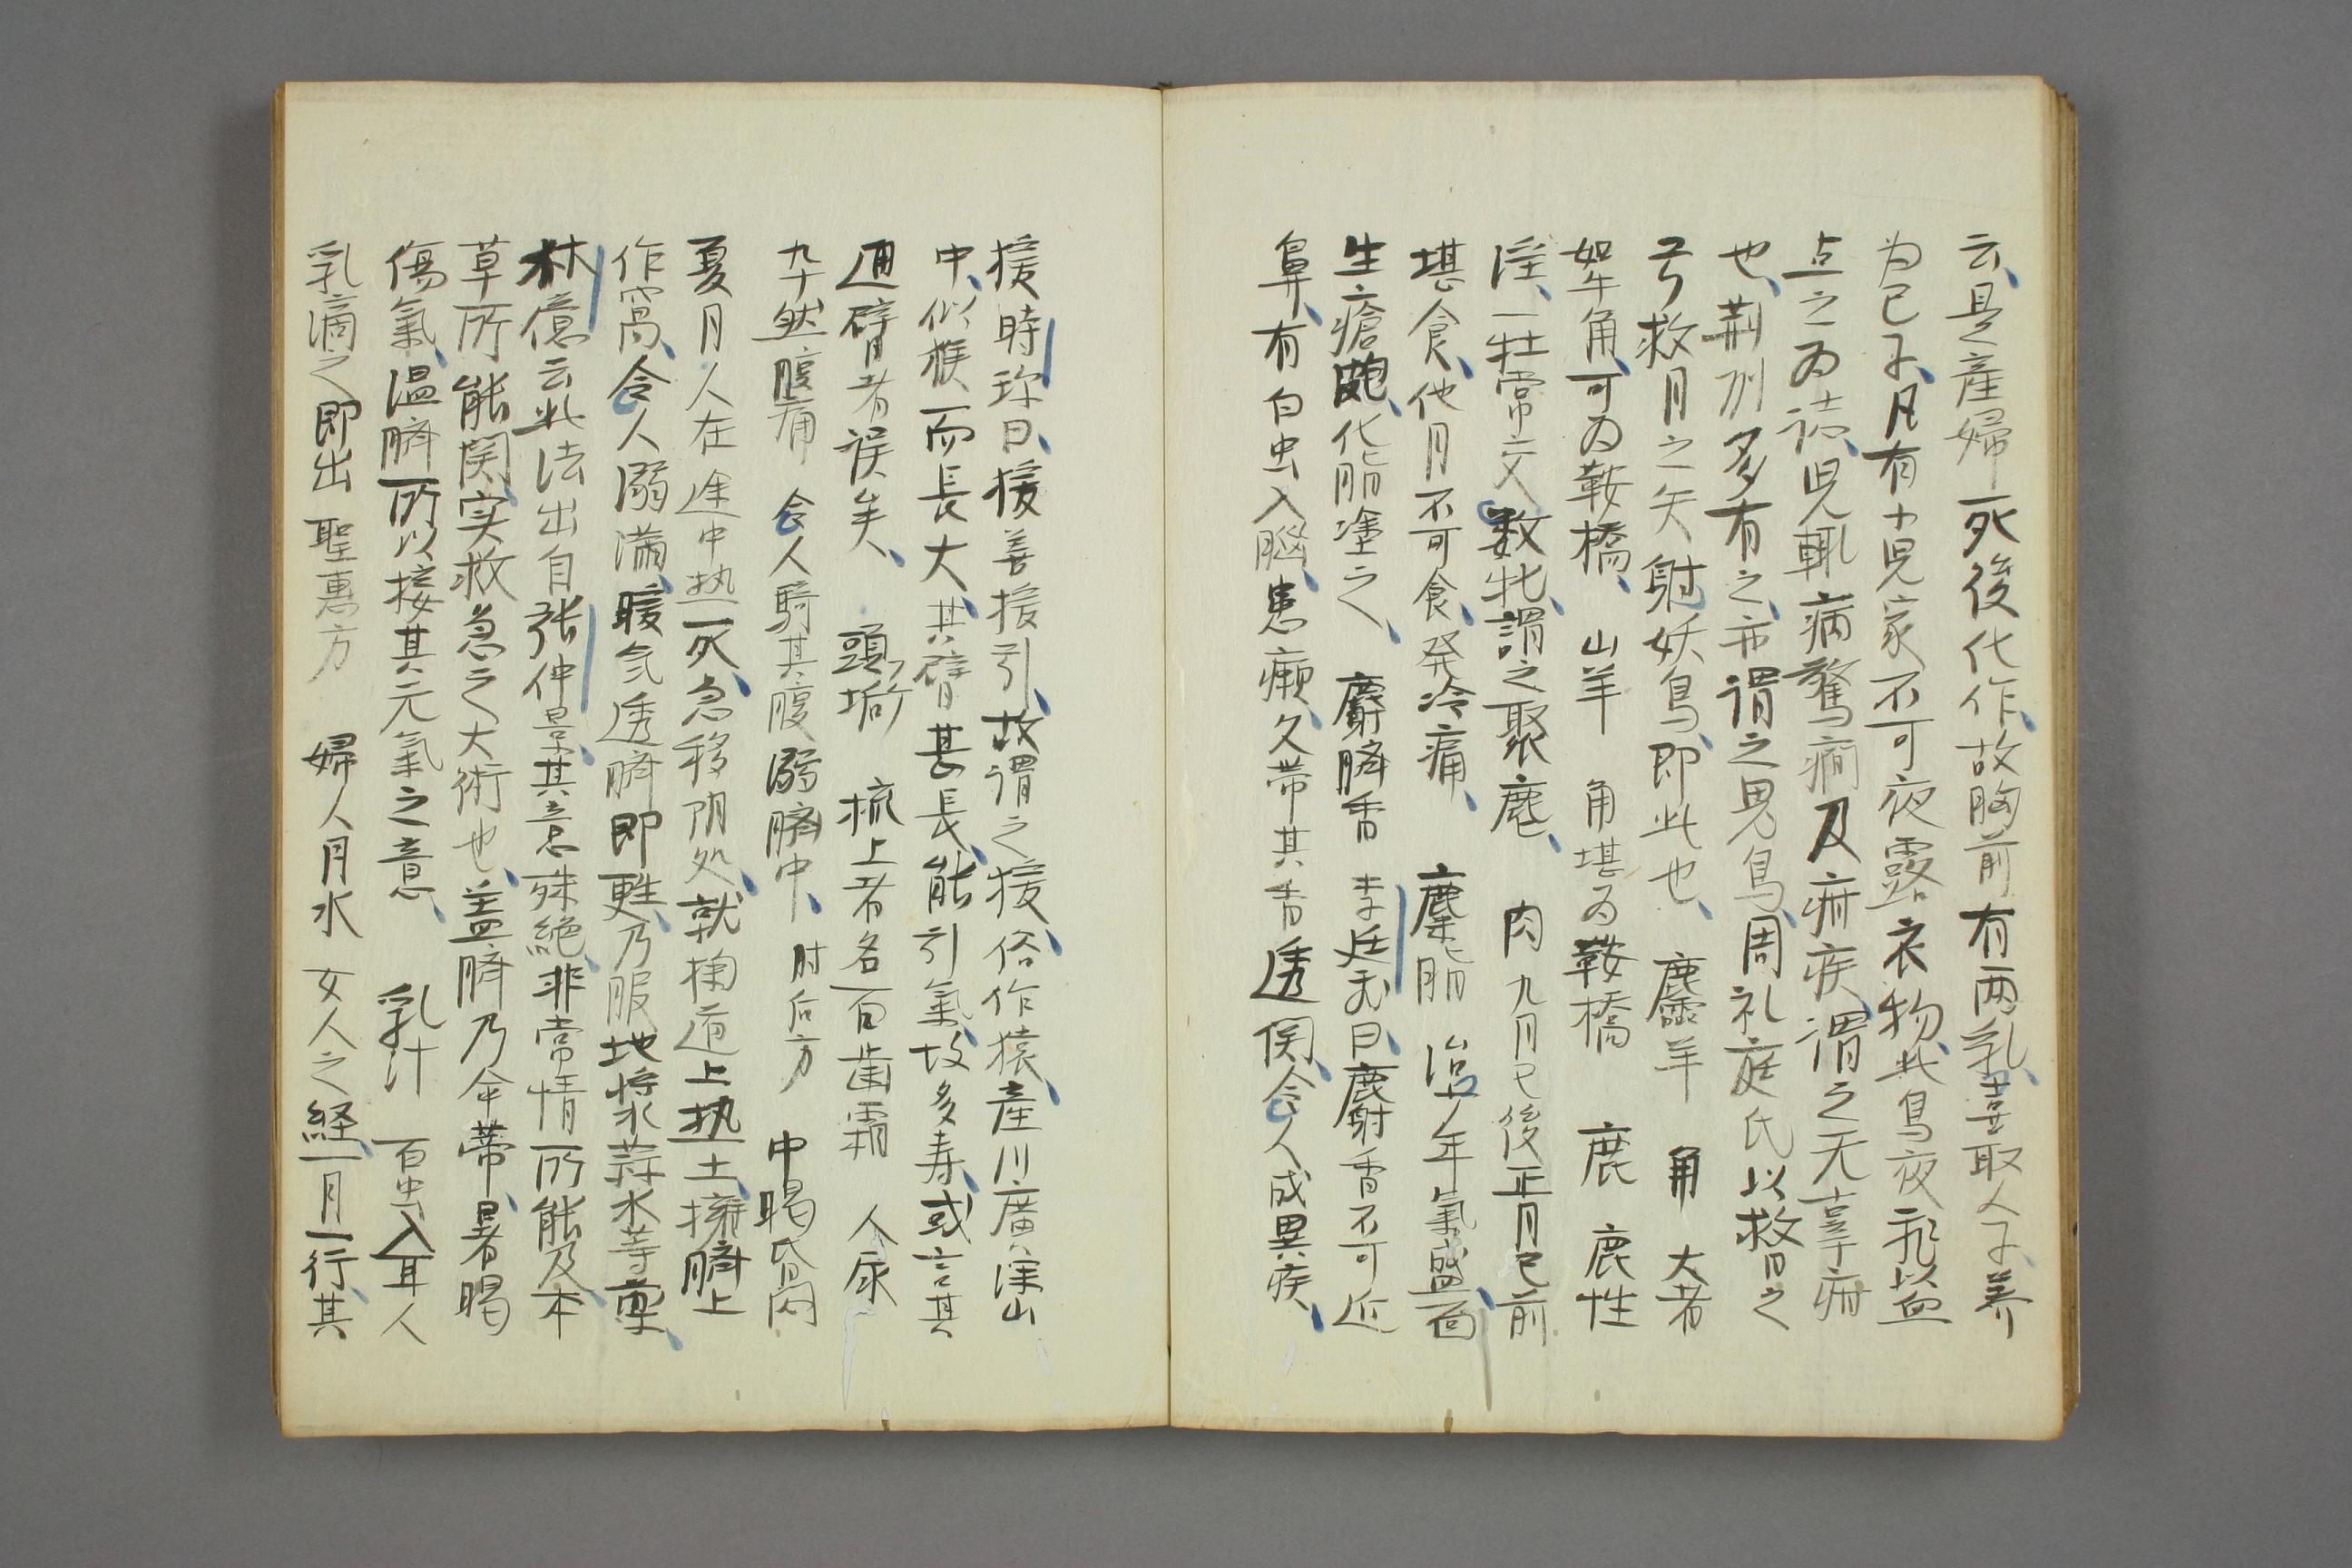 云、是産婦死後化作、故胸前有両乳、喜取人子、养
为己子、凡有小児家不可夜露衣物、此鳥夜飛以血
点之为誌、児輒病驚癇及疳疾、謂之无辜疳
也、荆州多有之、亦謂之鬼鳥、周礼庭氏以救日之
弓救月之矢射妖鳥、即此也、　麢羊　角　大者
如牛角、可为鞍橋、　山羊　角堪为鞍橋　鹿　鹿性
淫、一牡常交数牝、謂之聚麀、　肉　九月已後正月已前
堪食、他月不可食、発冷痛、　麋脂　治少年氣盛面
生瘡皰、化脂塗之、　麝臍香　李廷飛曰、麝香不可近
鼻、有白虫入脳、患癩、久帯其香透関、令人成異疾、
猨　時珍曰、猨善援引、故謂之猨、俗作猿、産川廣深山
中、似猴而長大、其臂甚長、能引氣、故多寿、或言其
通臂者誤矣、　頭垢　梳上者名百歯霜　人尿
卒然腹痛　令人騎其腹溺臍中、肘后方　中暍昏悶
夏月人在途中热死、急移阴処、就掬道上热土、擁臍上
作窩、令人溺満、暖气透臍即甦、乃服地漿蒜水等薬、
林億云此法出自張仲景、其意殊絶、非常情所能及、本
草所能関、実救急之大術也、蓋臍乃命蒂、暑暍
傷氣、温臍所以接其元氣之意、　乳汁　百虫入耳　人
乳滴之即出　聖恵方　婦人月水　女人之経、一月一行、其